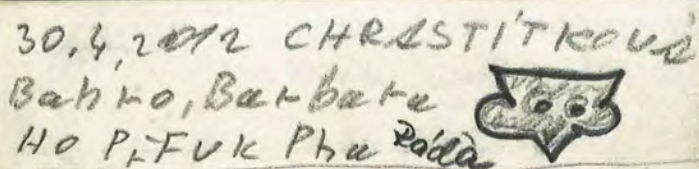 30.4.2012 CHRASTÍTKOVÁ
Bahno, Barbara
HO PrFUK Pha Ráďa